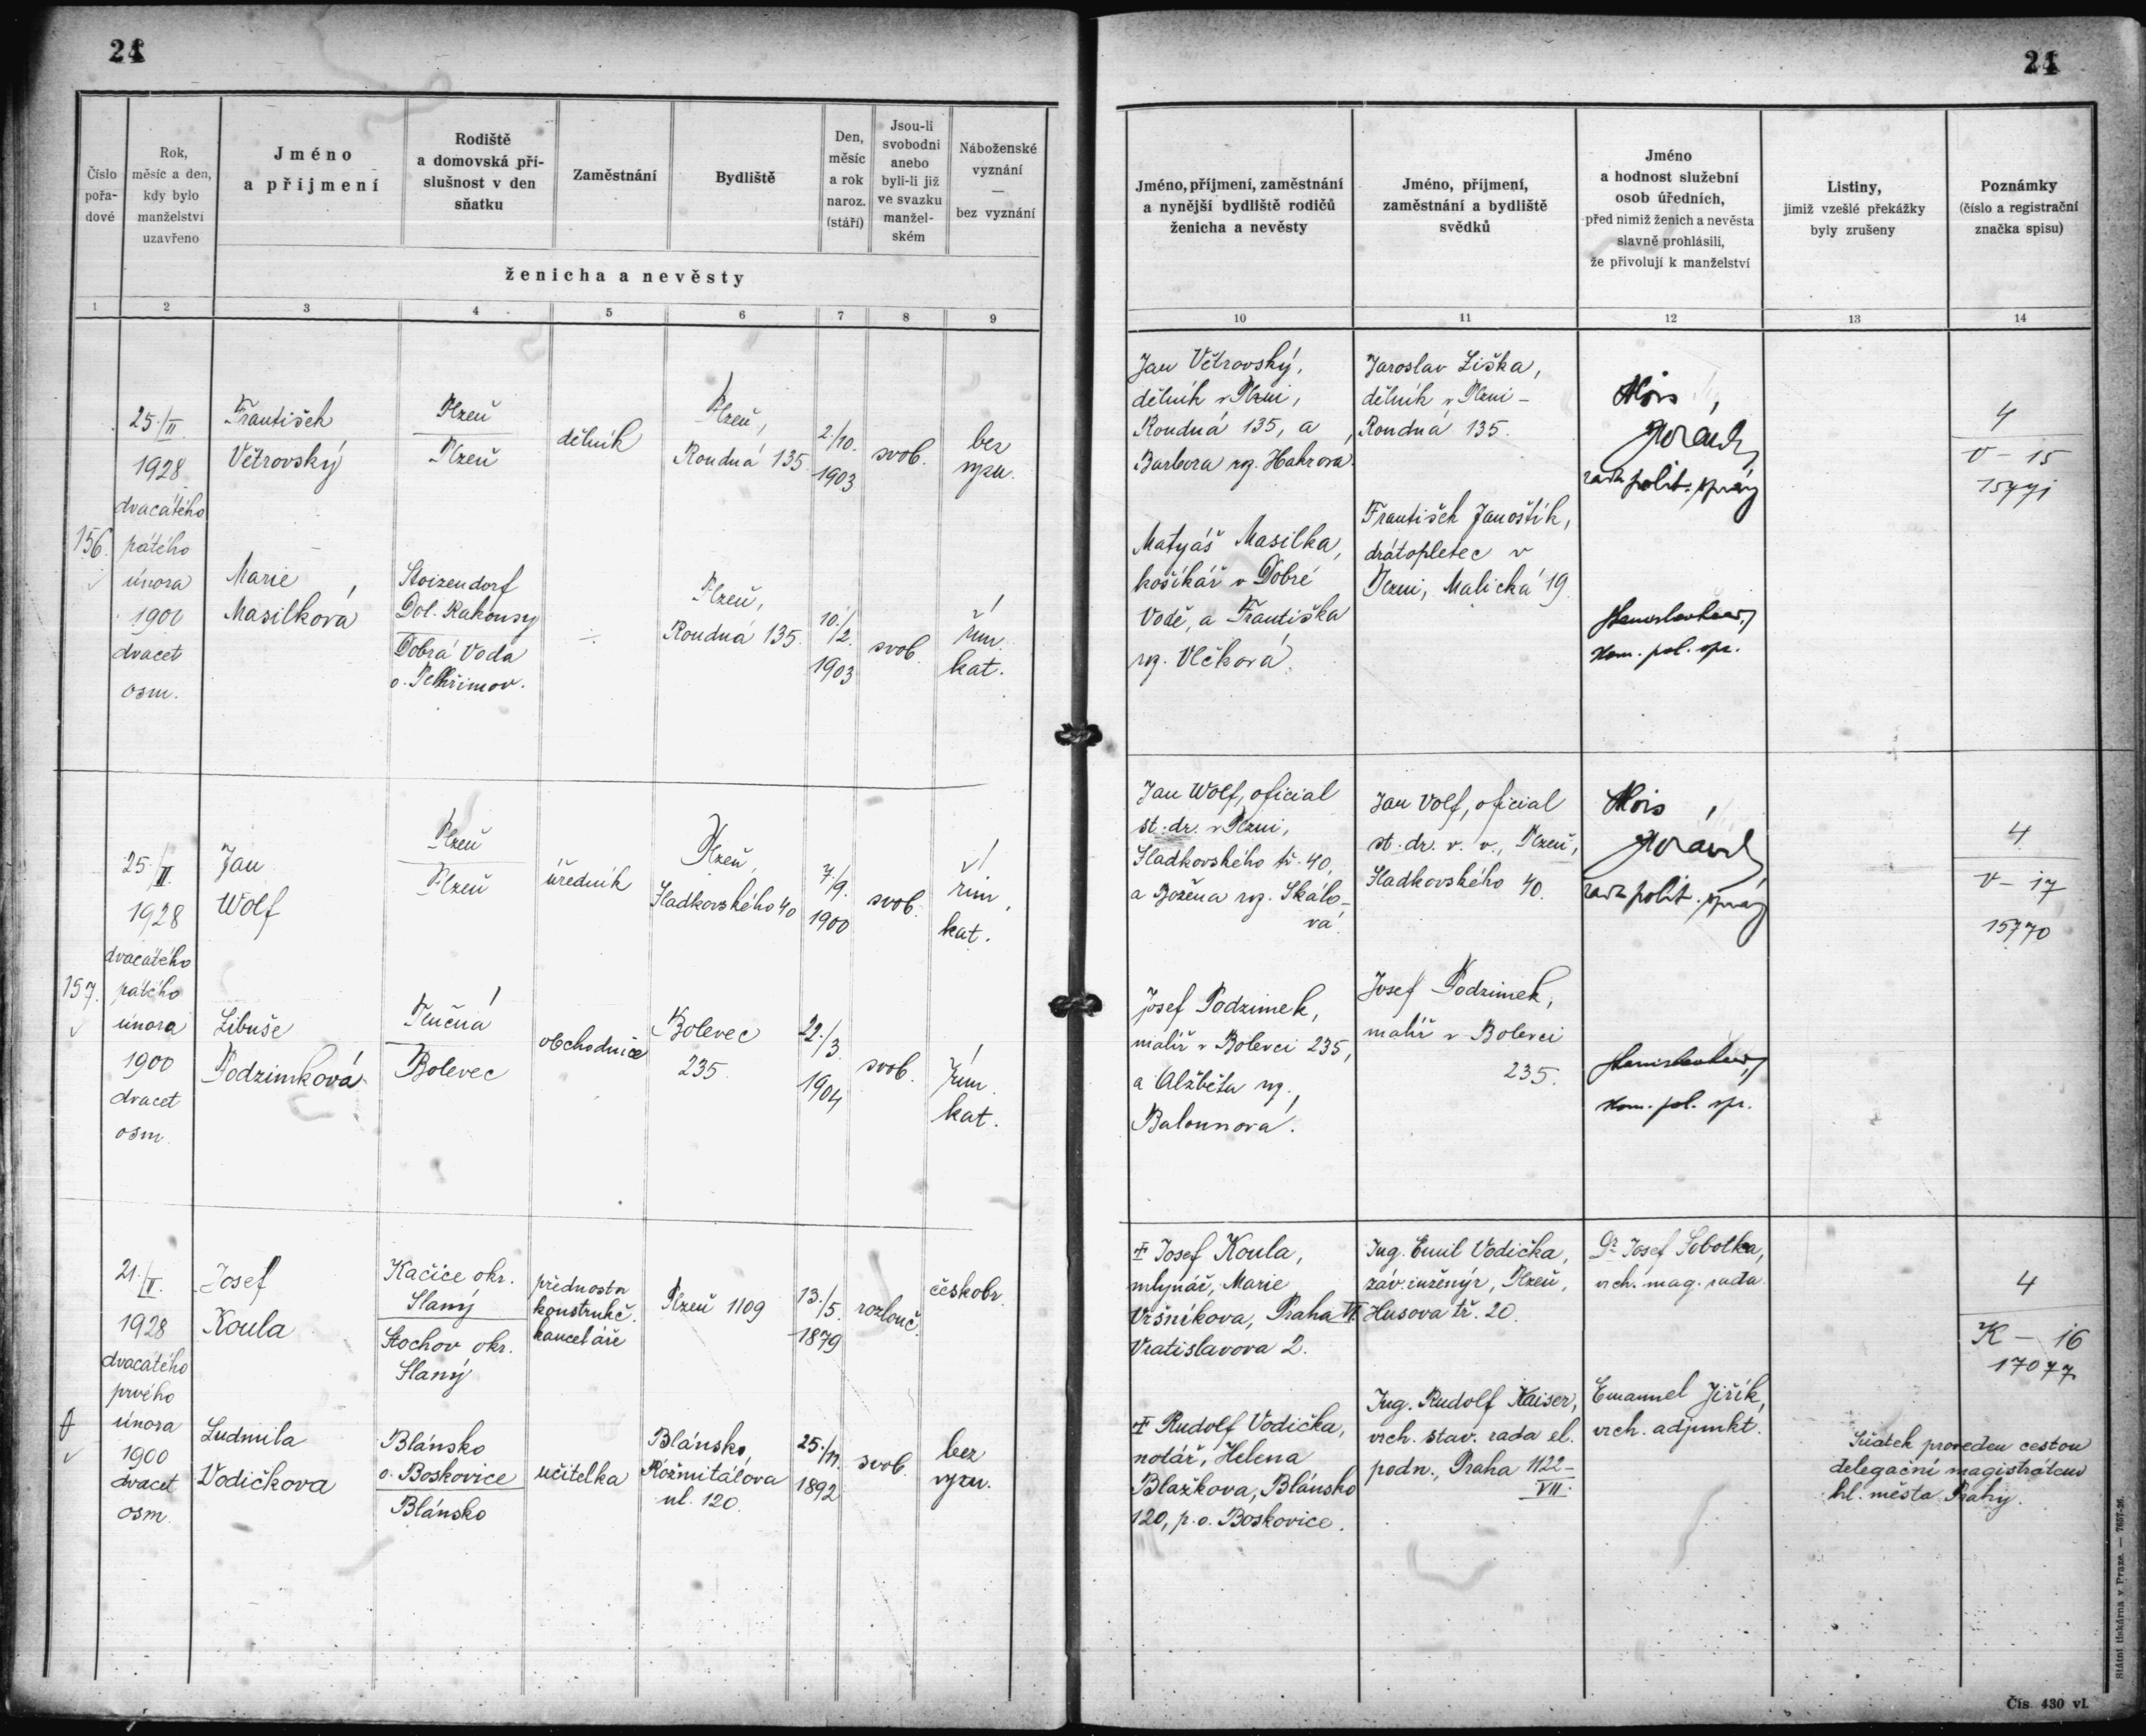 21
21
Číslo
pořa-
dové
Rok,
měsíc a den,
kdy bylo
manželství
uzavřeno
Jméno
a příjmení
Rodiště
a domovská pří-
slušnost v den
sňatku
Zaměstnání
Bydliště
Den,
měsíc
a rok
naroz.
(stáří)
Jsou-li
svobodni
anebo
byli-li již
ve svazku
manžel-
ském
Náboženské
vyznání
—
bez vyznání
ženicha a nevěsty
1 2 3 4 5 6 7 8 9
Jméno, příjmení, zaměstnání
a nynější bydliště rodičů
ženicha a nevěsty
Jméno, příjmení,
zaměstnání a bydliště
svědků
Jméno
a hodnost služební
osob úředních,
před nimiž ženich a nevěsta
slavně prohlásili,
že přivolují k manželství
Listiny,
jimiž vzešlé překážky
byly zrušeny
Poznámky
(číslo a registrační
značka spisu)
10 11 12 13 14
156.
25./II.
1928
dvacátého
pátého
února
1900
dvacet
osm.
František
Větrovský
Plzeň
Plzeň
dělník
Plzeň,
Roudná 135
2./10.
1903
svob.
bez
vyzn.
Marie
Masilková
Stoizendorf
Dol. Rakousy
Dobrá Voda
o. Pelhřimov.
÷
Plzeň,
Roudná 135.
10./2.
1903
svob.
řím.
kat.
Jan Větrovský,
dělník v Plzni,
Roudná 135, a
Barbora roz. Hahrova.
Matyáš Masilka,
košíkář v Dobré
Vodě, a Františka
roz. Vlčková.
Jaroslav Liška,
dělník v Plzni –
Roudná 135.
František Janoštík,
drátopletec v
Plzni, Malická 19.
Alois
rada polit. správy
kom. pol. spr.
4
V – 15
157.
25./II.
1928
dvacátého
pátého
února
1900
dvacet
osm.
Jan
Wolf
Plzeň
Plzeň
úředník
Plzeň,
Sladkovského 40
7./9.
1900
svob.
řím.
kat.
Libuše
Podzimková
Tlučná
Bolevec
obchodnice
Bolevec
235
22./3.
1904
svob.
řím.
kat.
Jan Wolf, oficial
st. dr. v Plzni,
Sladkovského tř. 40,
a Božena roz. Skálo-
vá.
Josef Podzimek,
malíř v Bolevci 235,
a Alžběta roz.
Balounová.
Jan Volf, oficial
st. dr. v. v., Plzeň,
Sladkovského 40.
Josef Podzimek,
malíř v Bolevci
235.
Alois
rada polit. správy
kom. pol. spr.
4
V – 17
15770
21./II.
1928
dvacátého
prvého
února
1900
dvacet
osm.
Josef
Koula
Kačice okr.
Slaný
Stochov okr.
Slaný
přednosta
konstrukč.
kanceláře
Plzeň 1109
13./5.
1879
rozlouč.
českobr.
Ludmila
Vodičkova
Blánsko
o. Boskovice
Blánsko
učitelka
Blánsko,
Rožmitálova
ul. 120.
25./11.
1892
svob.
bez
vyzn.
‡ Josef Koula,
mlynář, Marie
Vršníkova, Praha VI.
Vratislavova 2.
‡ Rudolf Vodička,
notář, Helena
Blažkova, Blánsko
120, p. o. Boskovice.
Ing. Emil Vodička,
záv. inženýr, Plzeň,
Husova tř. 20.
Ing. Rudolf Kaiser,
vrch. stav. rada el.
podn., Praha 1122–
VII.
Dr. Josef Sobotka,
vrch. mag. rada.
Emanuel Jiřík,
vrch. adjunkt.
Sňatek proveden cestou
delegační magistrátem
hl. města Prahy.
4
K – 16
17077
Státní tiskárna v Praze. — 7657-26.
Čís. 430 vl.